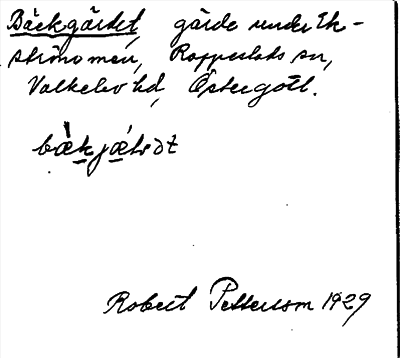 Bäckgärdet, gärde under Ek-
strömmen, Rappestads sn,
Valkebo hd, Östergötl.
Robert Pettersson 1929